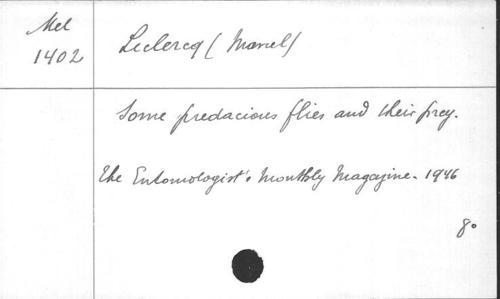 Mel
1402
Leclercq (Marcel)
Some predacious flies and their prey.
The Entomologist's Monthly Magazine. 1946
8°